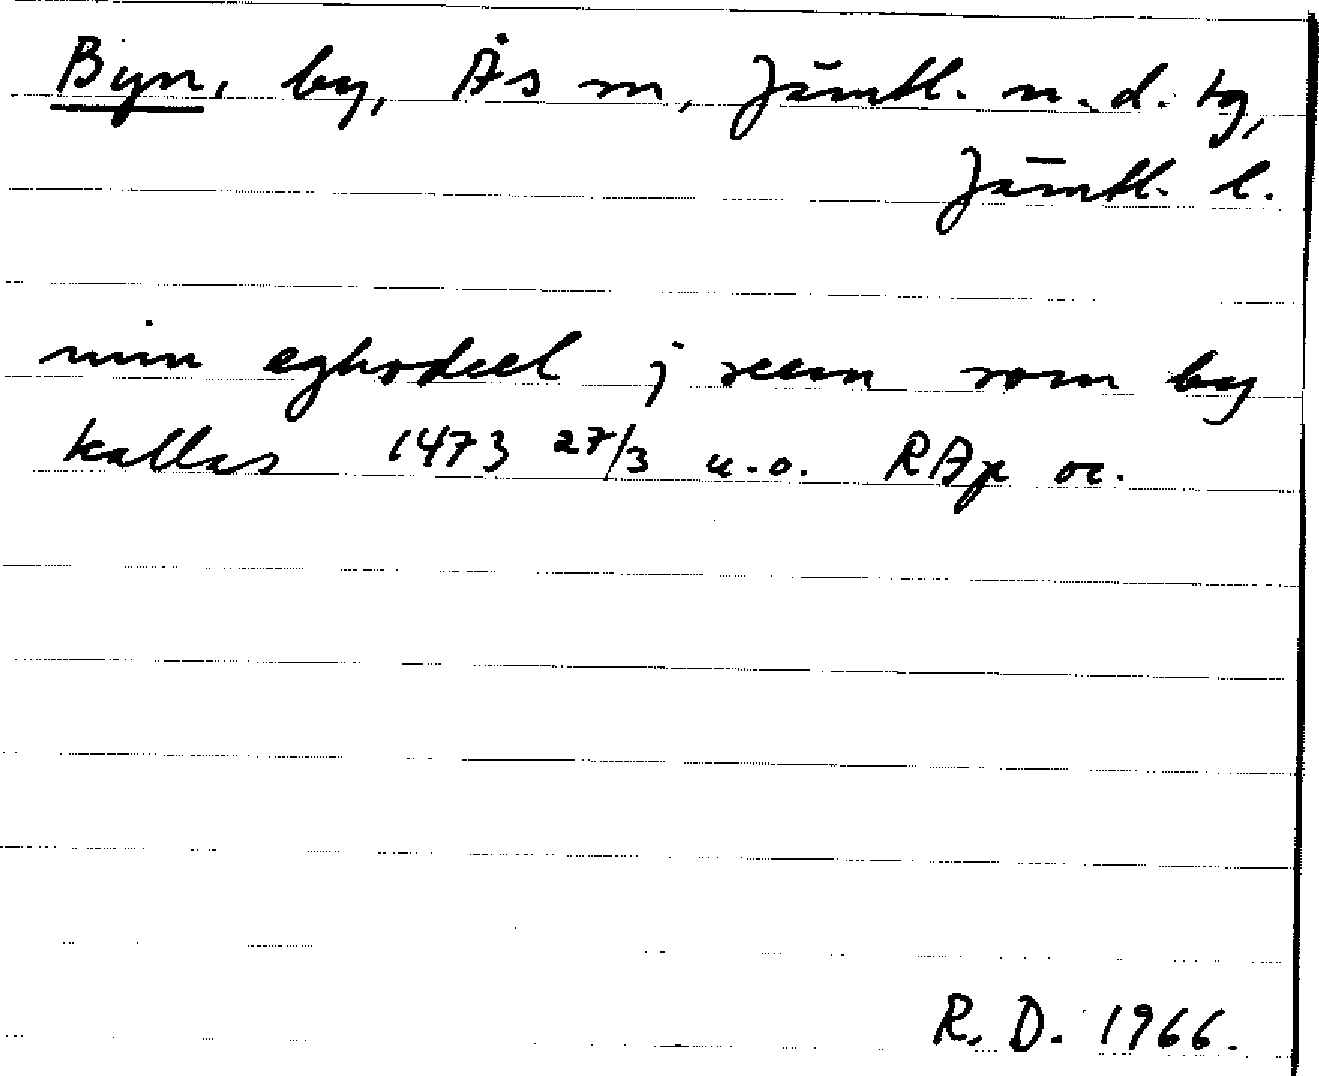 Byn, by, Ås sn, Jämtl. n. d. tg,
Jämtl. l.
min eghodeel j reem som by
kallas 1473 27/3 u.o. RAp or.
R. D. 1966.